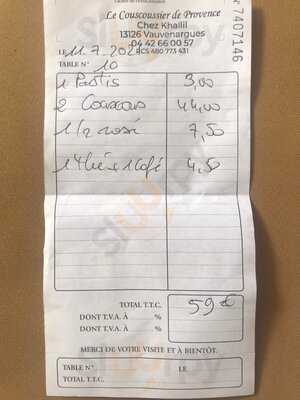 Le Couscoussier de Provence
Chez Khallil
13126 Vauvenargues
04 42 66 00 57
RCS 480 773 431
7487146
LE 11.7.202
TABLE N° 10
1 Pastis 3,00
2 Couscous 44,00
1/2 rosé 7,50
1 thé x 1 café 4,50
TOTAL T.T.C. 59 €
DONT T.V.A. À %
DONT T.V.A. À %
MERCI DE VOTRE VISITE ET À BIENTÔT.
TABLE N° : LE
TOTAL T.T.C. :